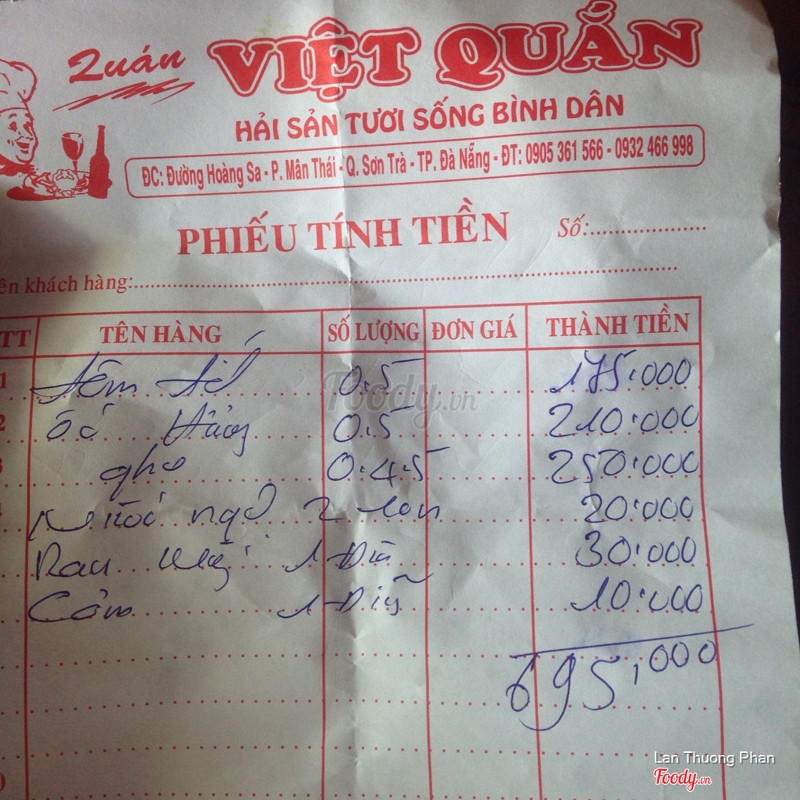 Quán VIỆT QUẮN
HẢI SẢN TƯƠI SỐNG BÌNH DÂN
ĐC: Đường Hoàng Sa - P. Mân Thái - Q. Sơn Trà - TP. Đà Nẵng - ĐT: 0905 361 566 - 0932 466 998
PHIẾU TÍNH TIỀN Số:
ên khách hàng:
TT TÊN HÀNG SỐ LƯỢNG ĐƠN GIÁ THÀNH TIỀN
1 Tôm 0.5 175.000
2 ốc Hương 0.5 210.000
3 ghẹ 0.45 250.000
Nước ngọt 2 lon 20.000
Rau 1 Đĩa 30.000
Cơm 1 Đĩa 10.000
695,000
Foody.vn
Lan Thuong Phan
Foody.vn